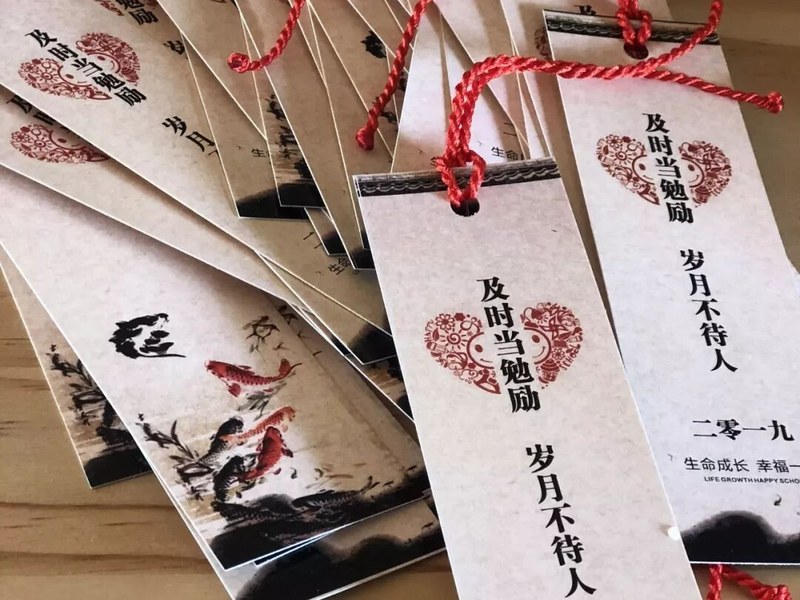 及时当勉励
岁月
及时当勉励
岁月不待人
及时当勉励
岁月不待人
二零一九
生命成长 幸福一
LIFE GROWTH HAPPY SCHO